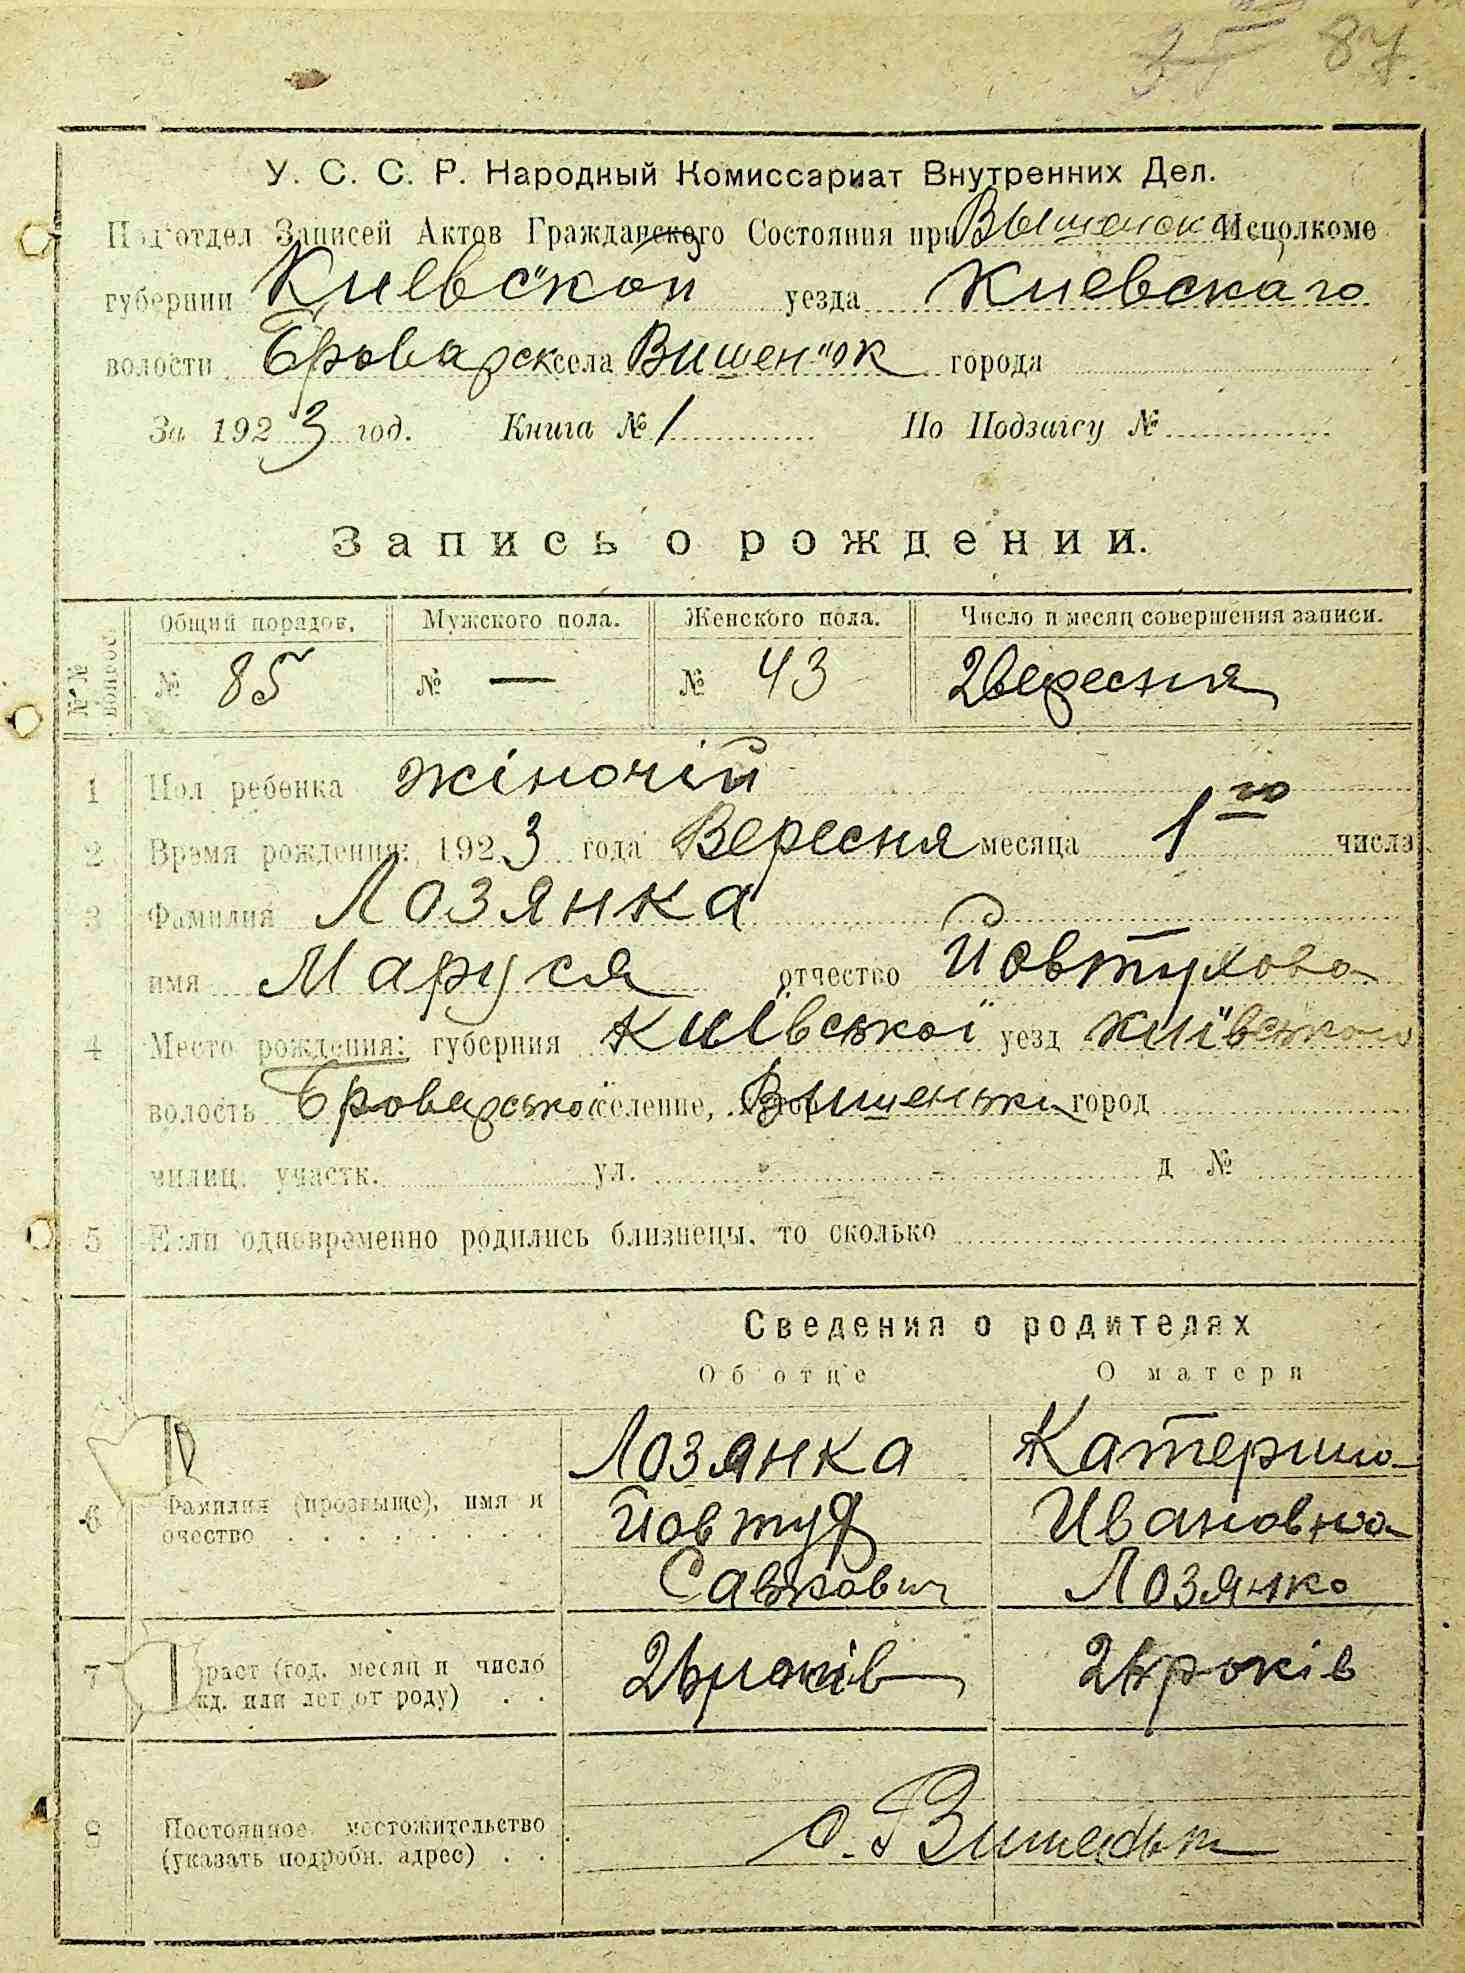 87.
У. С. С. Р. Народный Комиссариат Внутренних Дел.
Под'отдел Записей Актов Гражданского Состояния при Исполкоме
губернии Киевской уезда Киевскаго
волости Броварск села Вишеньок города
За 1923 год. Книга № 1 По Подзагсу №
Запись о рождении.
Общий порядов. Мужского пола. Женского пола. Число и месяц совершения записи.
№ 85 № — № 43 2 вересня
1 Пол ребенка жіночій
2 Время рождения: 1923 года Вересня месяца 1го числа
3 Фамилия Лозянка
имя Маруся отчество Йовтухова
4 Место рождения: губерния Київської уезд Київського
волость Броварської селение, Вишеньки город
милиц. участк. ул. д №
5 Если одновременно родились близнецы, то сколько
Сведения о родителях
Об отце О матери
Лозянка Катерина
6 Фамилия (прозвыще), имя и Йовтух Ивановна
очество Савкович Лозянко
7 раст (год. месяц и число років років
жд. или лет от роду)
8 Постоянное местожительство с.
(указать подробн. адрес)